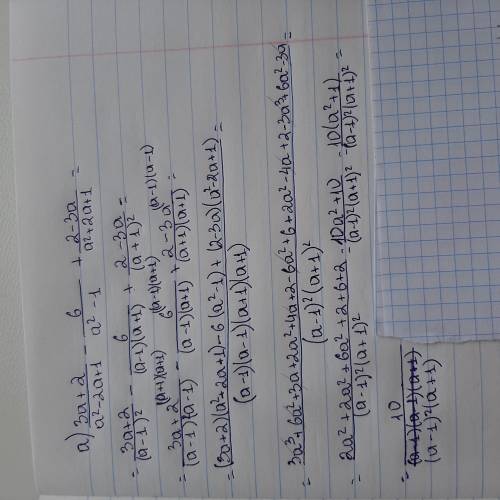 а) (3a+2)/(a²-2a+1) - 6/(a²-1) + (2-3a)/(a²+2a+1) =
= (3a+2)/(a-1)² - 6/((a-1)(a+1)) + (2-3a)/(a+1)² =
= (3a+2)/((a-1)(a-1)) (a+1)(a+1) - 6/((a-1)(a+1)) (a-1)(a+1) + (2-3a)/((a+1)(a+1)) (a-1)(a-1) =
= ((3a+2)(a²+2a+1)-6(a²-1)+(2-3a)(a²-2a+1))/((a-1)(a-1)(a+1)(a+1)) =
= (3a³+6a²+3a+2a²+4a+2-6a²+6+2a²-4a+2-3a³+6a²-3a)/((a-1)²(a+1)²) =
= (2a²+2a²+6a²+2+6+2)/((a-1)²(a+1)²) = (10a²+10)/((a-1)²(a+1)²) = (10(a²+1))/((a-1)²(a+1)²) =
= 10/((a-1)(a-1)(a+1)) (a-1)²(a+1)